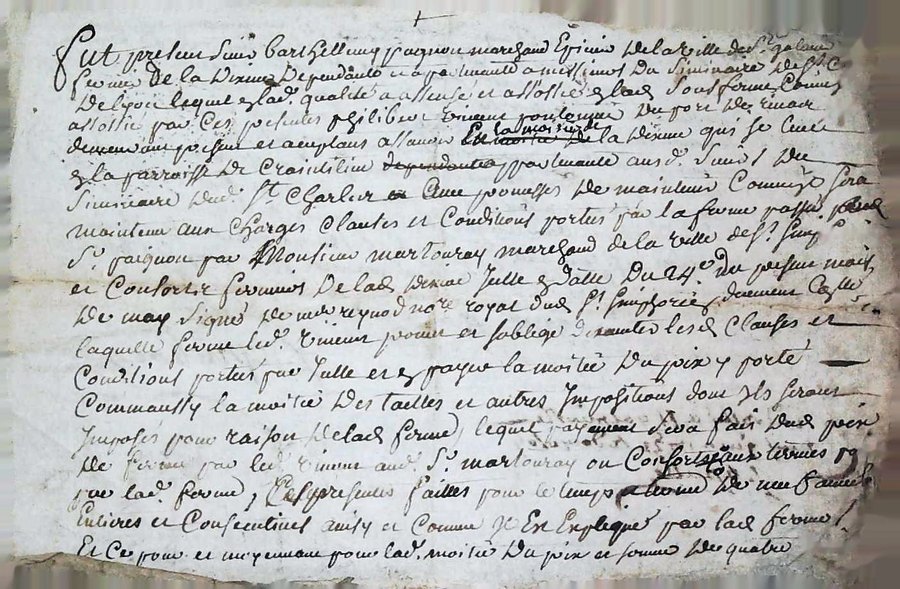 fut presen Sieur barthellemy paignon marchand Epicier De la ville de St galmier
fermier De la Disme Dependante et apartenante a messieurs Du Siminaire De St C
De lyon lequel ladt qualité a assensé et assossié Sousferme Comme
assossié par Ces presentes philibert timeur Du port De
demeurant presen et acceptans assavoir la moitié de la Disme qui se leve
la parroisse De Craintilieu dependante appartenante ausdt Sieurs Du
Siminaire Dudt St Charles Avec promesses De maintenir Comme sera
maintenu aux Charges Clauses et Conditions portés par la ferme passé
Sr paignon par Monsieur martouray marchand de la ville de St Simp
et Consorts fermiers De lad Disme Icelle Datte Du 24e Du presen mois
De may Signé De notre royal dud St Simphorien duement
laquelle ferme led timeur promet et soblige Clauses et
Conditions portés par Icelle et payer la moitié Du prix y porté
Comm aussy la moitié Des tailles et autres Impositions dont Ils seront
Imposés pour raison De lad ferme, lequel payement sera fait Dud prix
De ferme par led timeur aud Sr martouray ou Consorts aux termes
par lad ferme, Ces presentes failles pour le temps De neuf années
Entieres et Consecutives ainsy et Comme Il Est Expliqué par lad ferme
Et Ce pour et moyennant pour lad moitié Du prix et somme De quatre